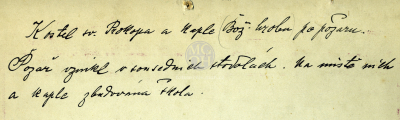 Kostel sv. Prokopa a kaple Bož. hrobu po požáru.
Požár vznikl v sousedních stodolách. Na místě nich
a kaple zbudována škola.